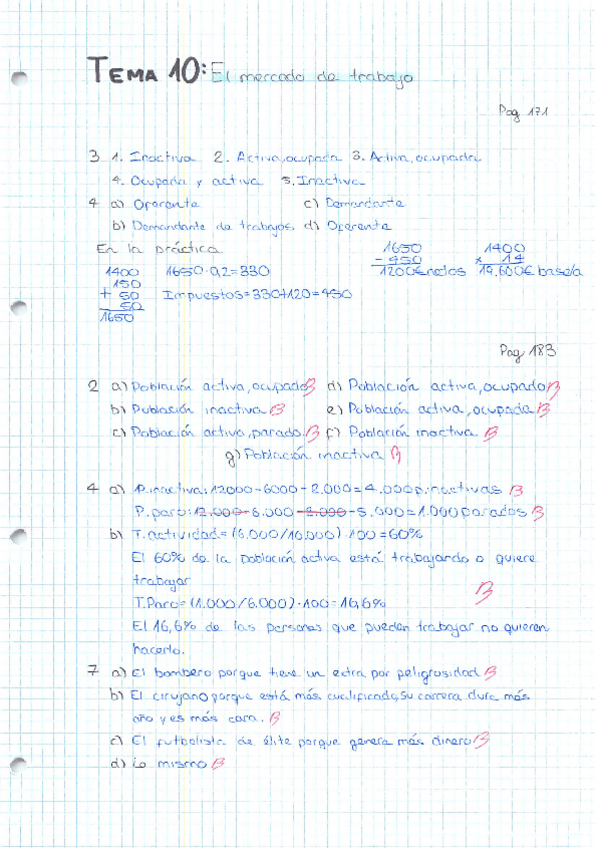 TEMA 10: El mercado de trabajo
Pag 171
3 1. Inactiva 2. Activa, ocupada 3. Activa, ocupada
4. Ocupada y activa 5. Inactiva
4 a) Oferente c) Demandante
b) Demandante de trabajos d) Oferente
En la práctica
1400
150
+ 50
50
1650
1650·0,2=330
Impuestos=330+120=450
1650
- 450
1200€ netos
1400
x 14
19.600€ base/a
Pag 183
2 a) Población activa, ocupado B d) Población activa, ocupado B
b) Población inactiva B e) Población activa, ocupada B
c) Población activa, parado. B f) Población inactiva B
g) Población inactiva B
4 a) P.inactiva: 12000-6000-2.000=4.000 p.inactivas B
P. paro: 12.000-6.000-2.000-5.000=1.000 parados B
b) T.actividad=(6.000/10.000)·100=60%
El 60% de la población activa está trabajando o quiere
trabajar
T.Paro=(1.000/6.000)·100=16,6% B
El 16,6% de las personas que pueden trabajar no quieren
hacerlo.
7 a) El bombero porque tiene un extra por peligrosidad B
b) El cirujano porque está más cualificado, su carrera dura más
año y es más cara. B
c) El futbolista de élite porque genera más dinero B
d) Lo mismo B